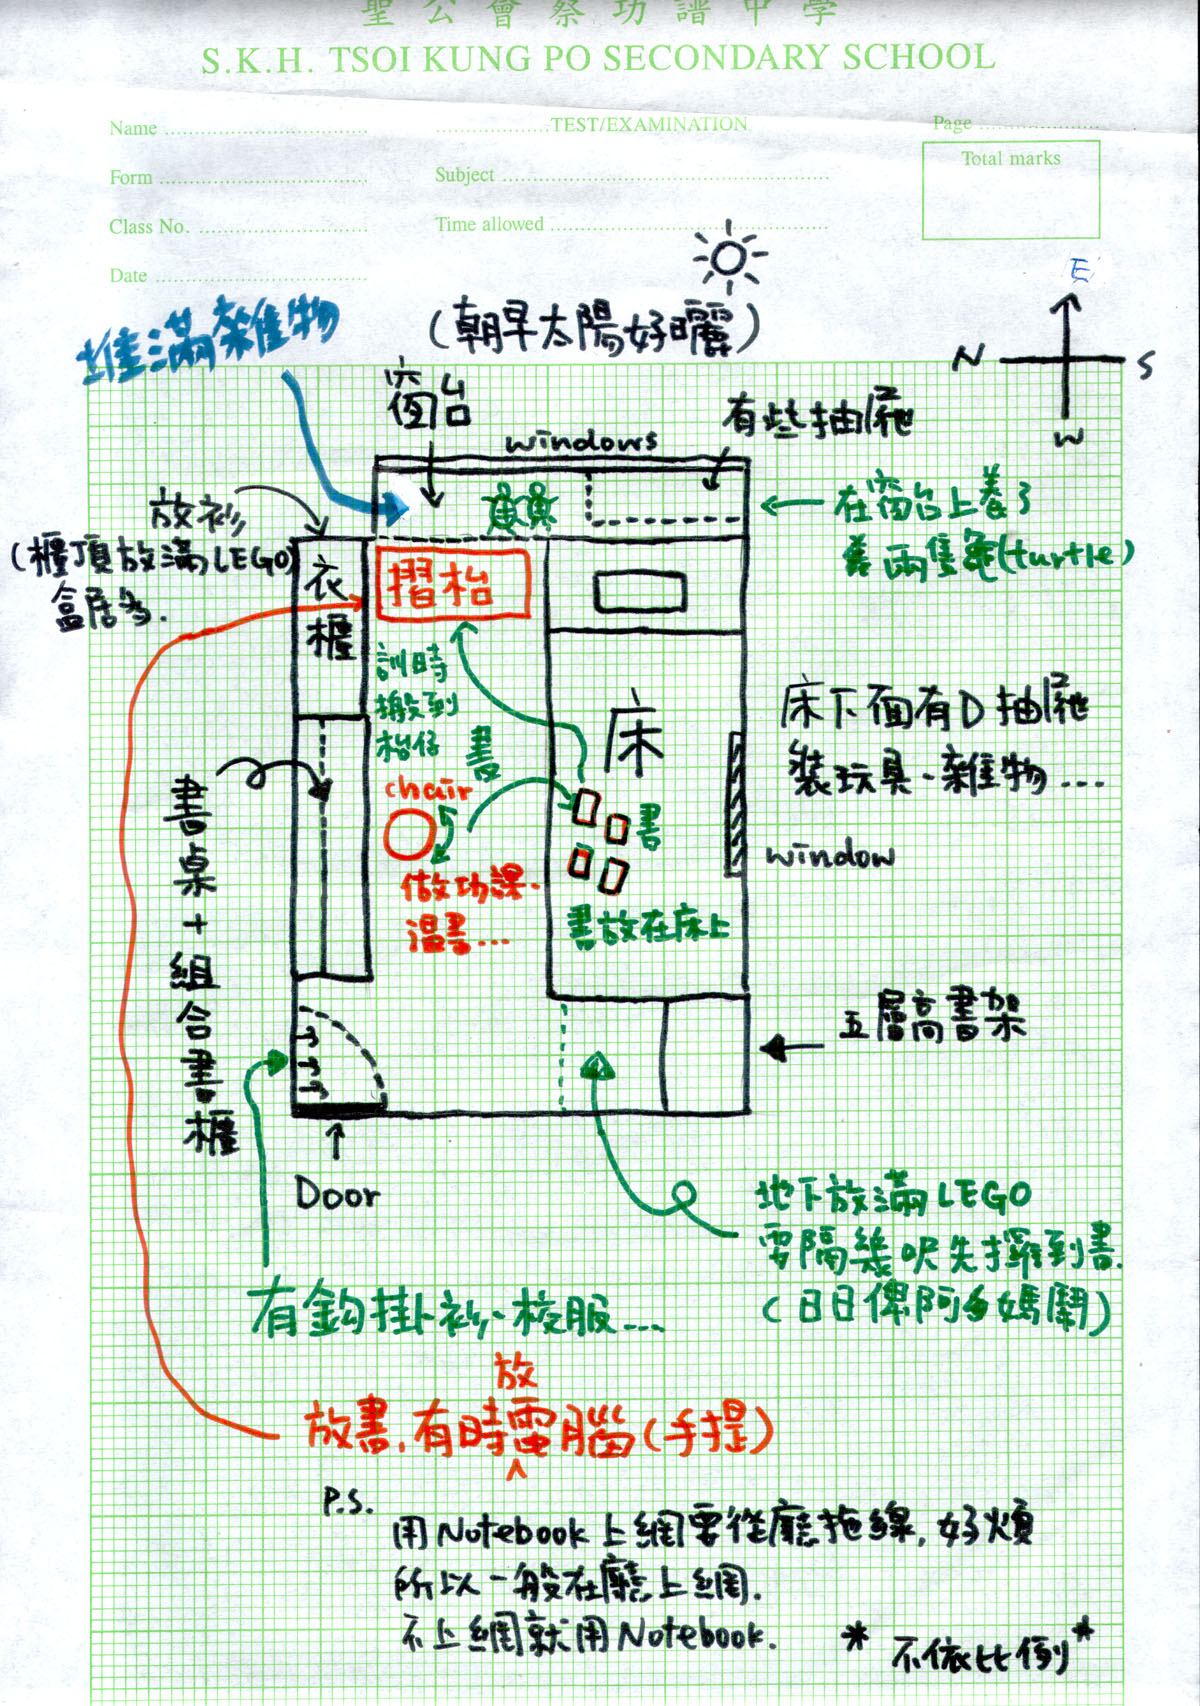 聖公會蔡功譜中學
S.K.H. TSOI KUNG PO SECONDARY SCHOOL
Name
TEST/EXAMINATION
Page
Form
Subject
Total marks
Class No.
Time allowed
Date
E
N
S
W
堆滿雜物
(朝早太陽好曬)
窗台
windows
有些抽屜
放衫
(櫃頂放滿LEGO
盒居多.
衣櫃
摺枱
龜龜
在窗台上養了
養兩隻龜(turtle)
訓時
搬到
枱仔
書
床
床下面有D抽屜
裝玩具、雜物...
chair
書
window
做功課、
溫書...
書放在床上
書桌+組合書櫃
五層高書架
Door
地下放滿LEGO
要隔幾呎先攞到書.
(日日俾阿媽鬧)
有鈎掛衫、校服...
放
放書,有時電腦(手提)
P.S.
用Notebook上網要從廳拖線,好煩
所以一般在廳上網.
不上網就用Notebook.
*不依比例*